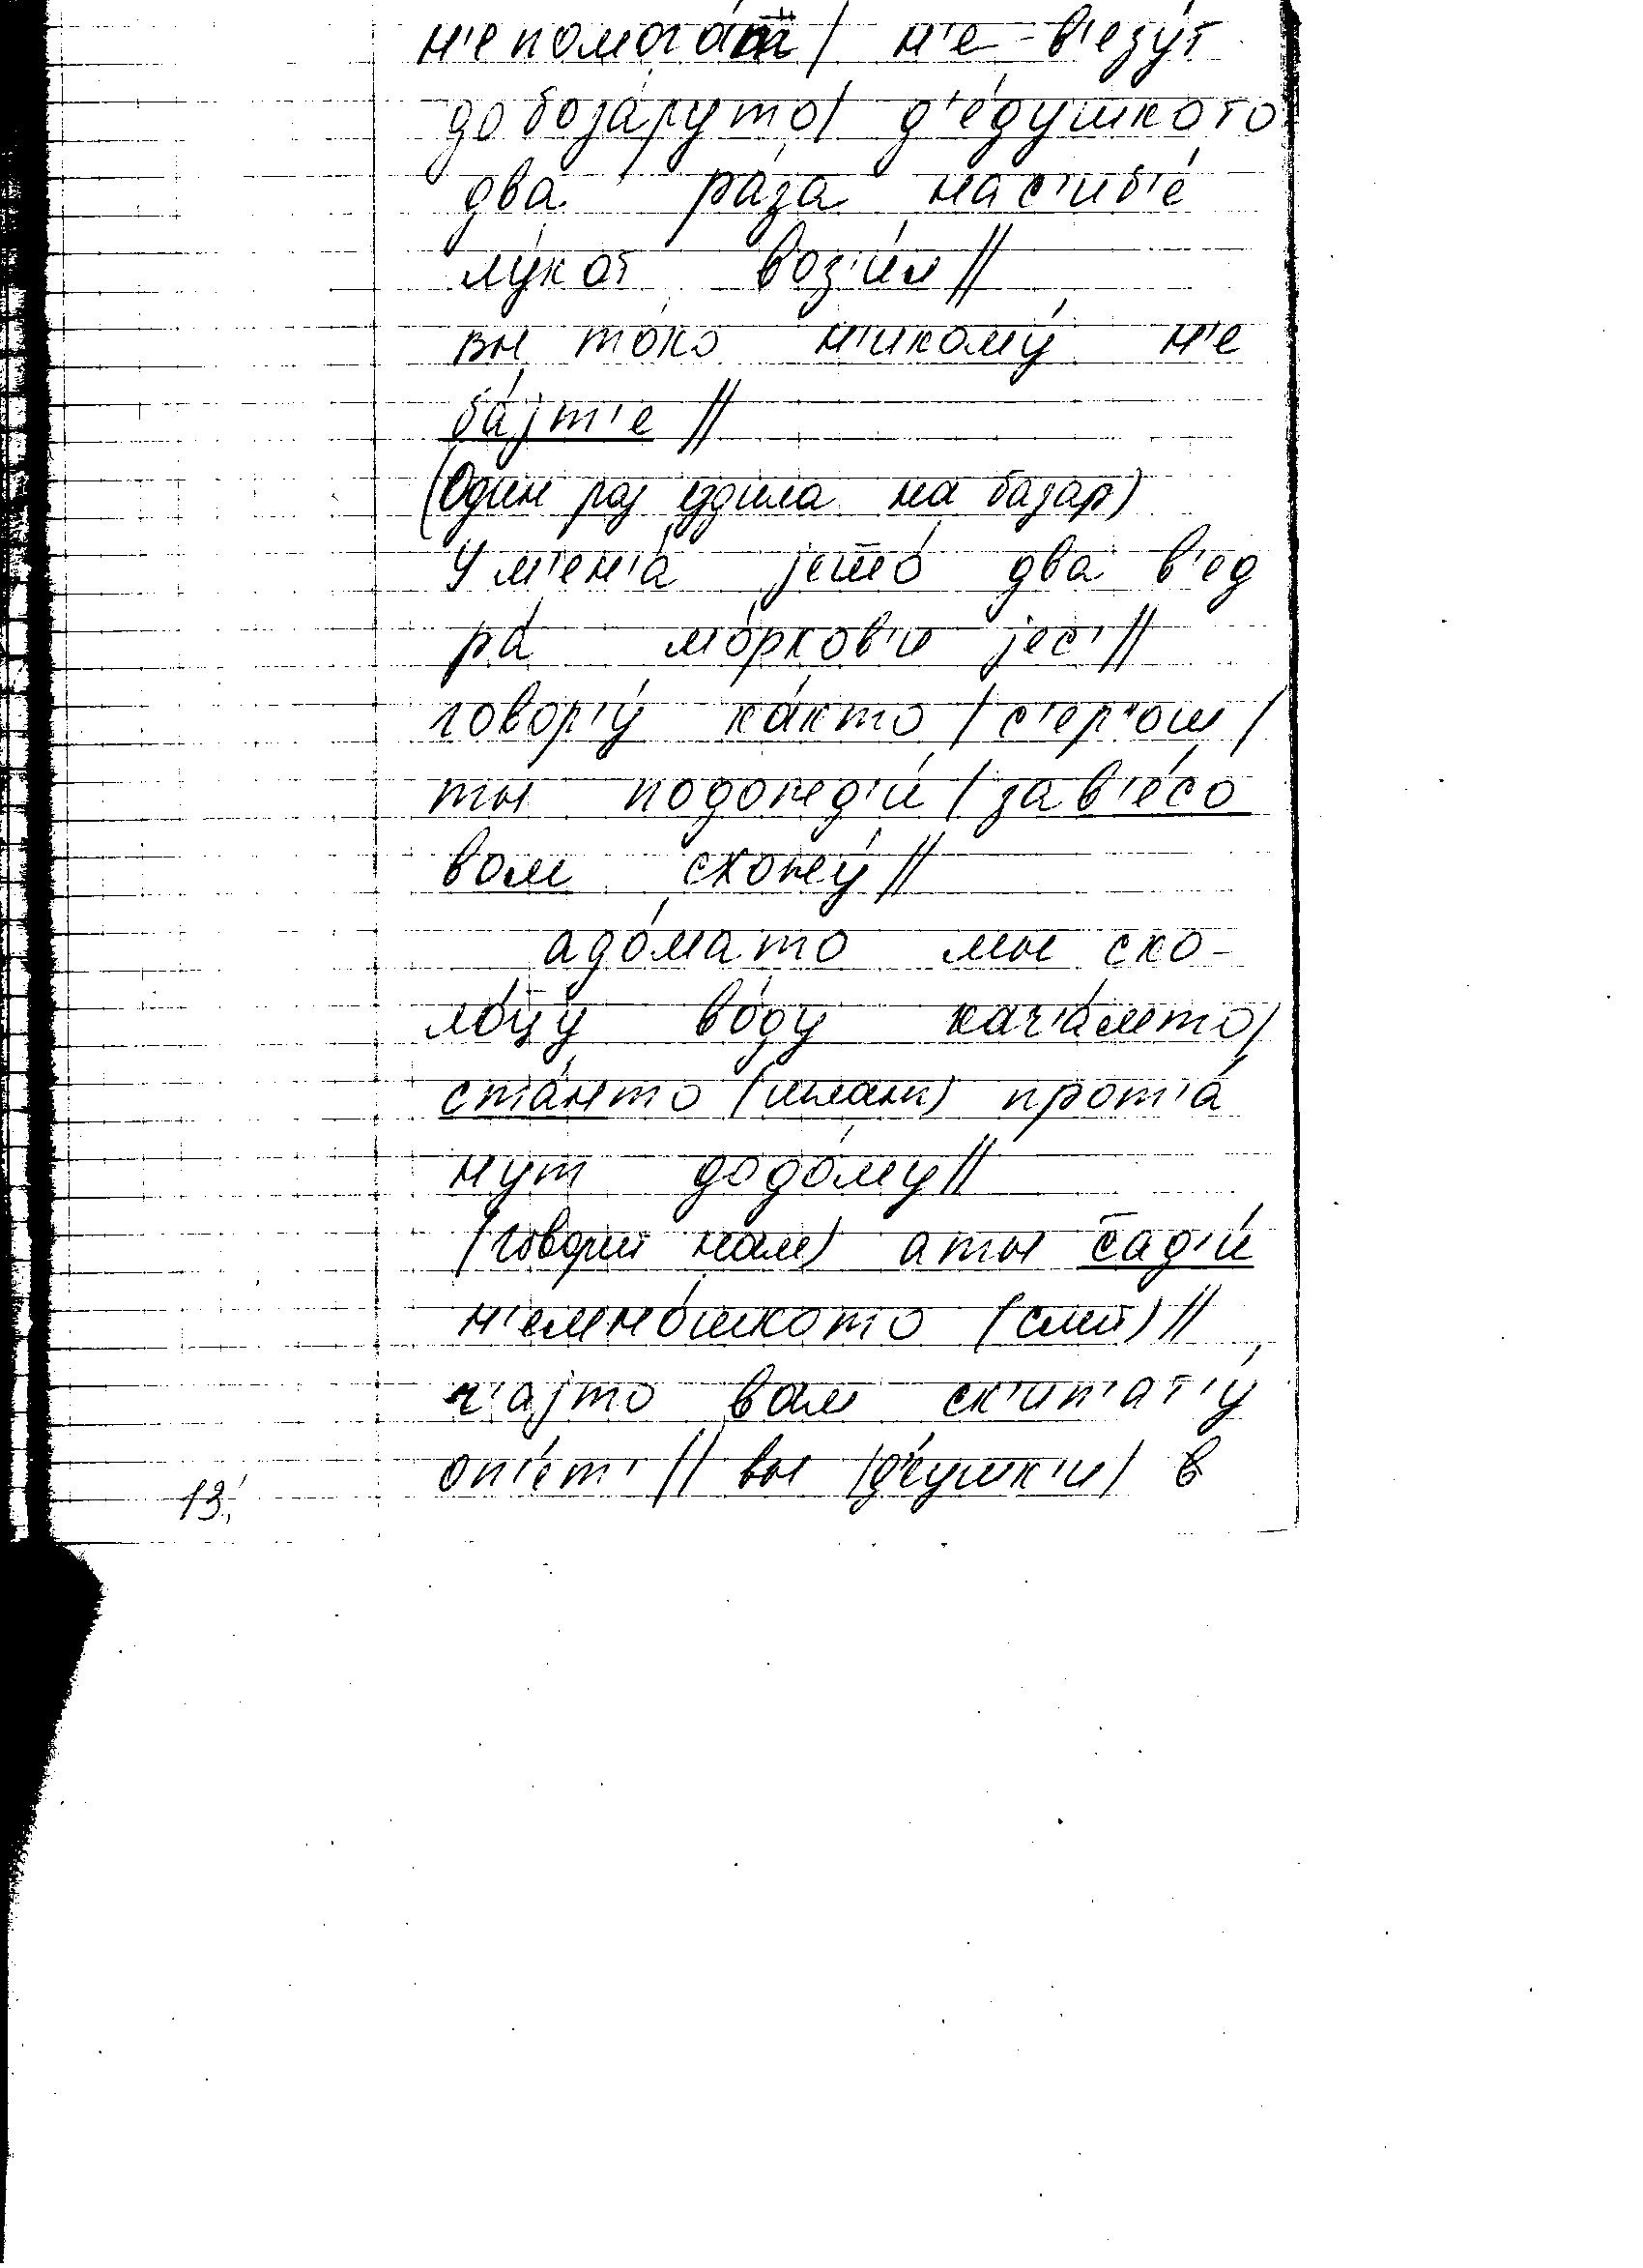 н'е помога́т / н'е - в'езу́т
до боза́руто / д'е́душкото
два ра́за нас'иб'е́
лу́кот воз'и́л //
вы то́ко н'икому́ н'е
ба́јт'е //
(Один раз ездила на базар)
У м'ен'а́ јешо́ два в'ед
ра́ мо́рков'и јес' //
говор'у́ ка́кто / с'ер'ош /
ты подожд'и́ / за в'е́со
вом схожу́ //
адо́мато мы ско-
ло́цу во́ду кач'а́мто /
ста́нто (шланг) прот'а́
нут додо́му //
(говорит нам) а ты сад'и́
н'емно́шкото (слей) //
ч'ајто вам ск'ип'ат'у́
оп'е́т' // вы / д'е́ушк'и / в
13.